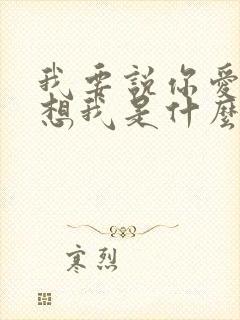 我要說你愛
想我是什麼
寒烈